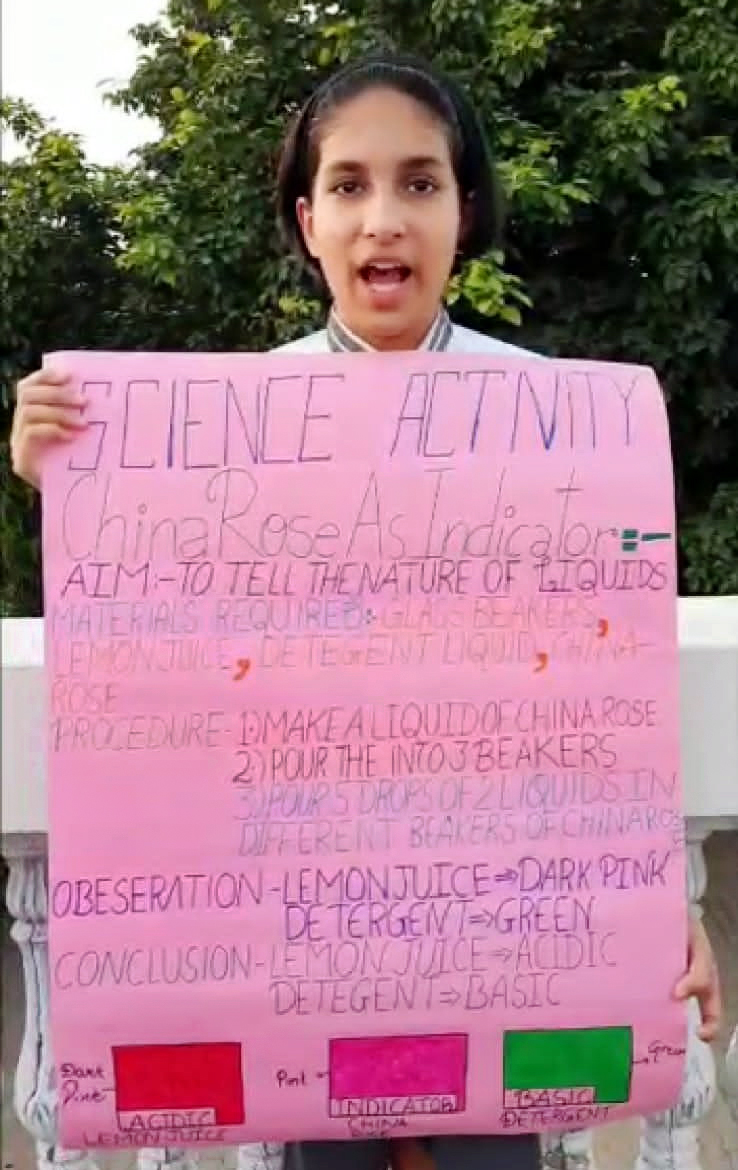 SCIENCE ACTIVITY
China Rose As Indicator:-
AIM:-TO TELL THE NATURE OF LIQUIDS
MATERIALS REQUIRED:- GLASS BEAKERS,
LEMON JUICE, DETEGENT LIQUID, CHINA-
ROSE
PROCEDURE- 1)MAKE A LIQUID OF CHINA ROSE
2) POUR THE INTO 3 BEAKERS
3) POUR 5 DROPS OF 2 LIQUIDS IN
DIFFERENT BEAKERS OF CHINAROSE
OBESERATION-LEMON JUICE⇒DARK PINK
DETERGENT⇒GREEN
CONCLUSION-LEMON JUICE⇒ACIDIC
DETEGENT⇒BASIC
Dark Pink
ACIDIC
LEMON JUICE
Pink
INDICATOR
CHINA
Green
BASIC
DETERGENT